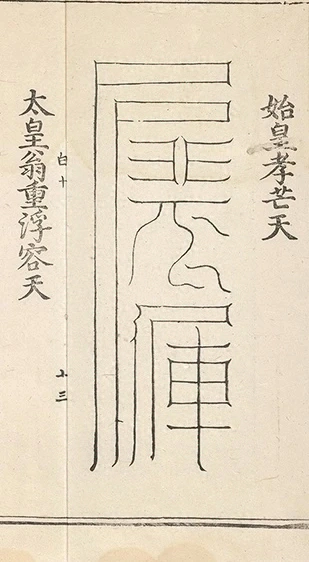 始皇孝芒天
白十
太皇翁重浮容天